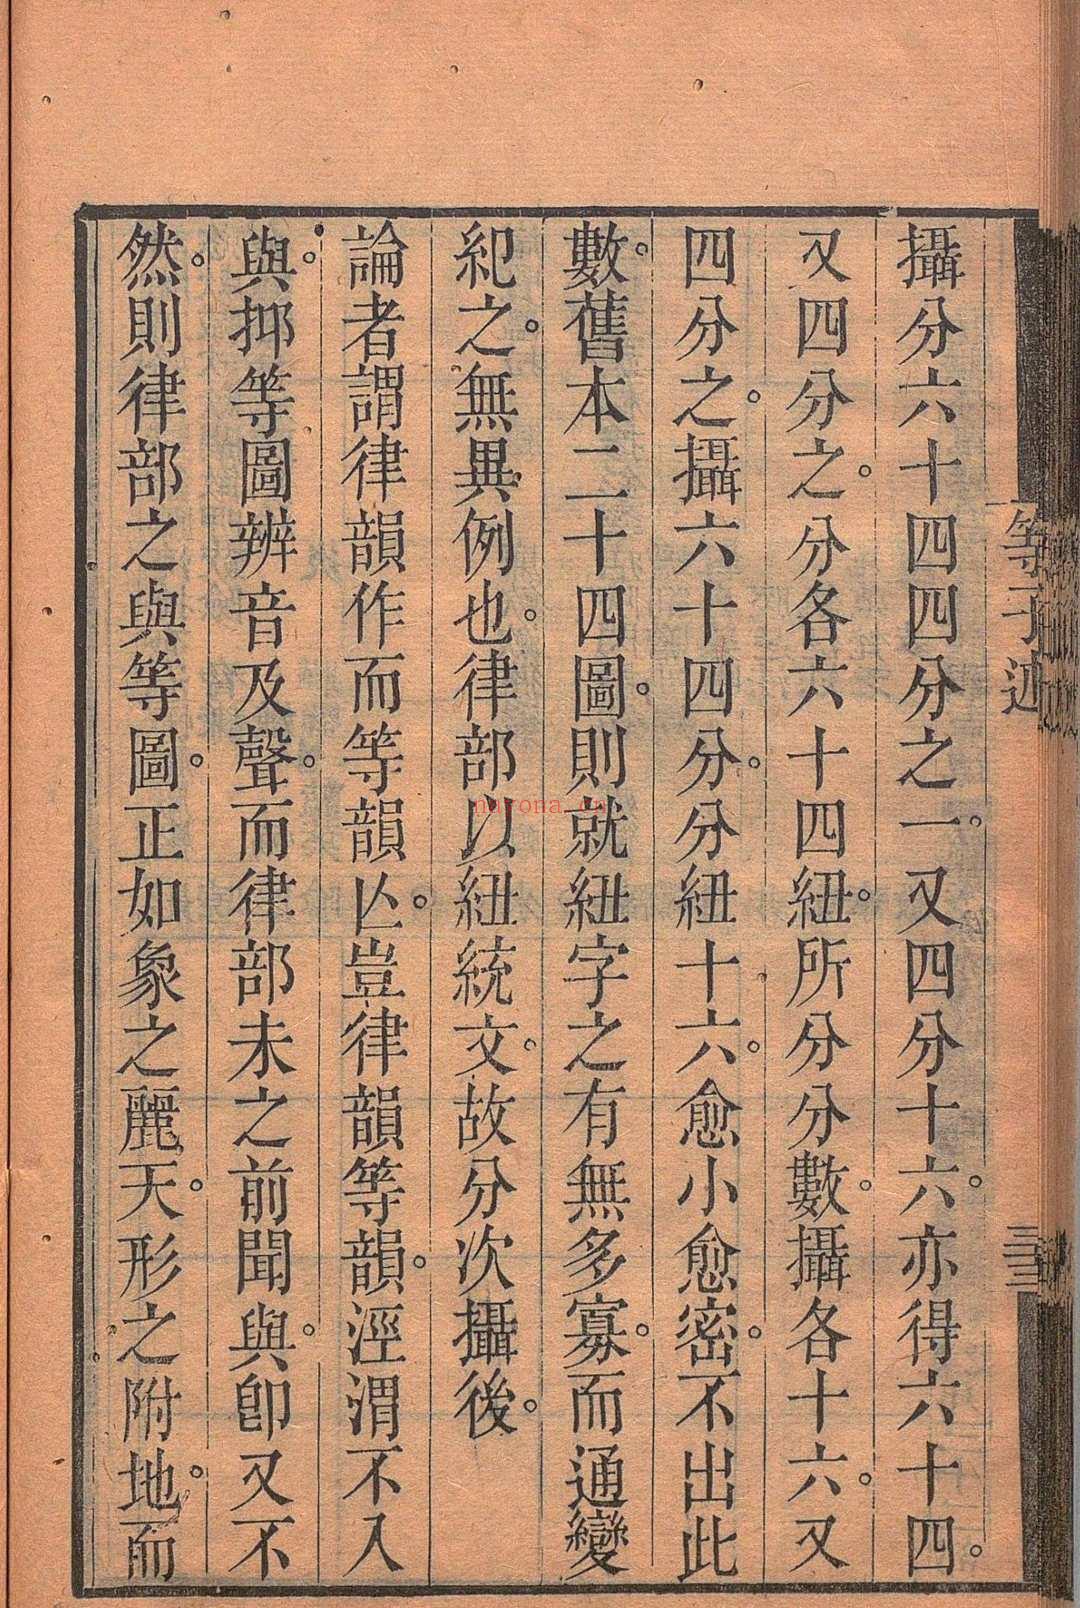 攝分六十四四分之一。又四分十六。亦得六十四。
又四分之。分各六十四紐。所分分數。攝各十六。又
四分之。攝六十四分。分紐十六。愈小愈密。不出此
數。舊本二十四圖。則就紐字之有無多寡。而通變
紀之。無異例也。律部以紐統文。故分次攝後。
論者謂律韻作而等韻亾。豈律韻等韻。涇渭不入
與。抑等圖辨音及聲。而律部未之前聞與。卽又不
然。則律部之與等圖。正如象之麗天。形之附地。而
等子述
三
nayona.cn